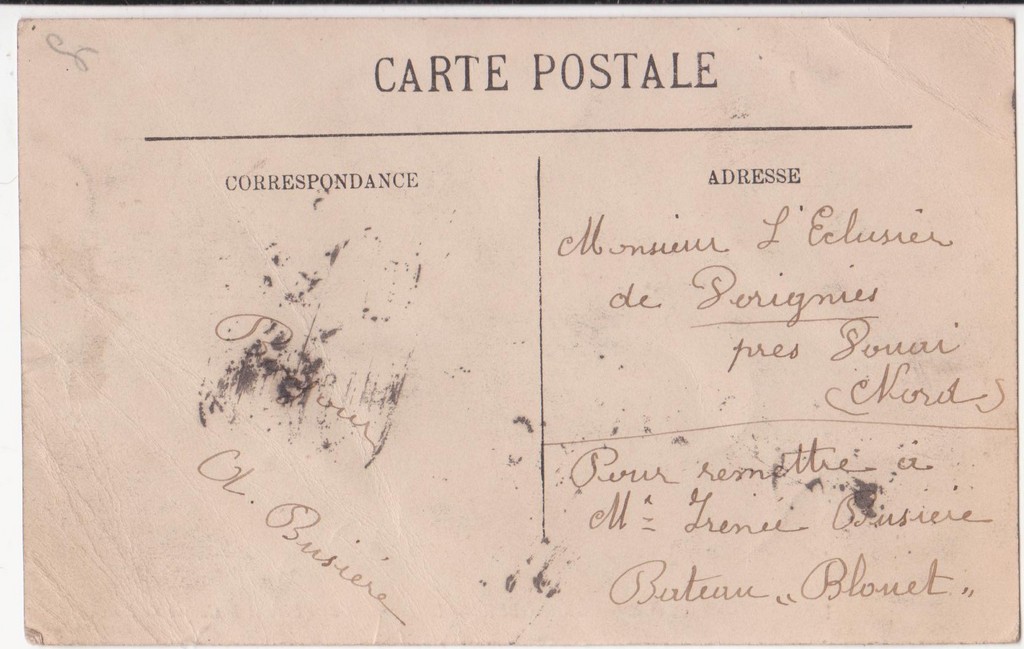 CARTE POSTALE
CORRESPONDANCE
A. Busière
ADRESSE
Monsieur L'Eclusier
de Dorignies
près Douai
(Nord)
Pour remettre à
Mr Irénée Busière
Bateau „Blonet„